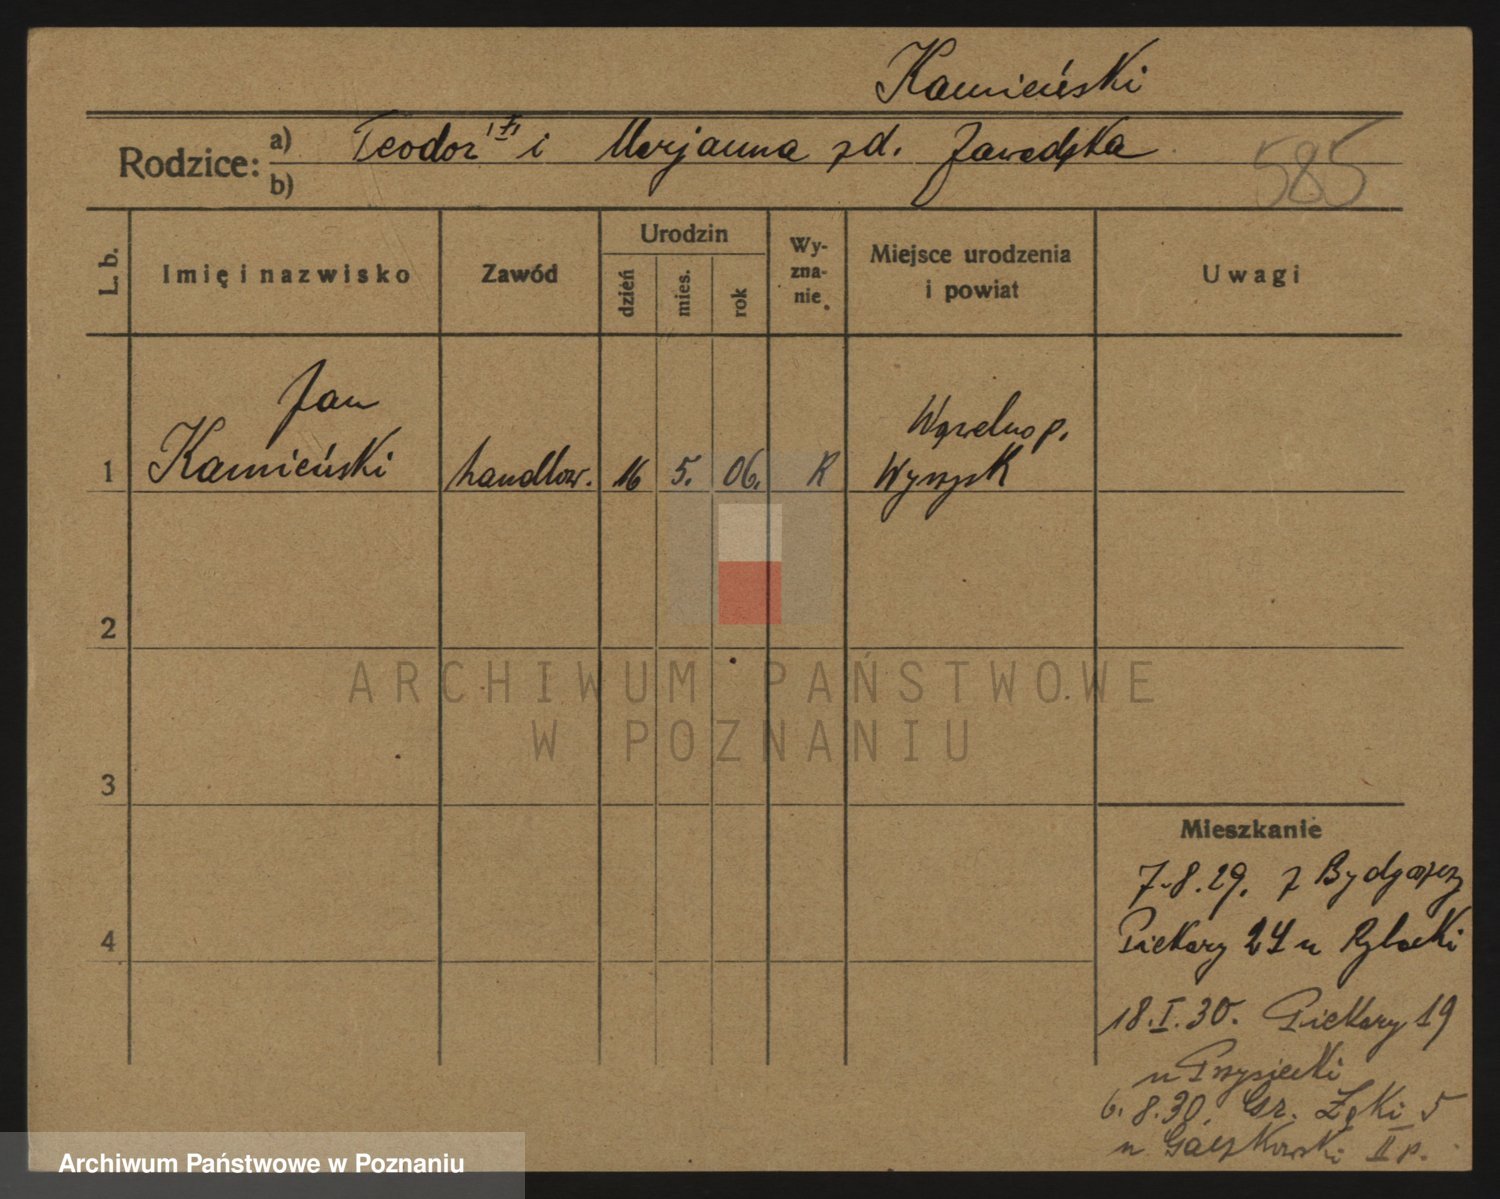 Kamieński
Rodzice:
a) Teodor i Marjanna zd. Zawadzka
b)
585
L. b.
Imię i nazwisko
Zawód
Urodzin
dzień
mies.
rok
Wy-
zna-
nie
Miejsce urodzenia
i powiat
Uwagi
Jan
Wąwelno p.
1 Kamieński handlow. 16 5. 06. R Wyrzysk
2
3
4
ARCHIWUM PAŃSTWOWE
W POZNANIU
Mieszkanie
7.8.29. z Bydgoszcz
Piekary 24 u Rybacki
18.I.30. Piekary 19
u Przysiecki
6.8.30. Gr. Łąki 5
u Gałzkowski II p.
Archiwum Państwowe w Poznaniu